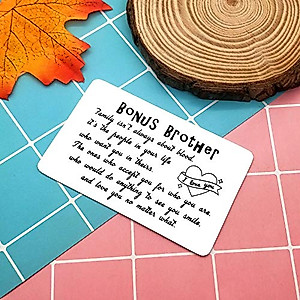 Bonus Brother
Family isn't always about blood.
it's the people in your life
who want you in theirs.
The ones who accept you for who you are,
who would do anything to see you smile,
and love you no matter what.
I love you